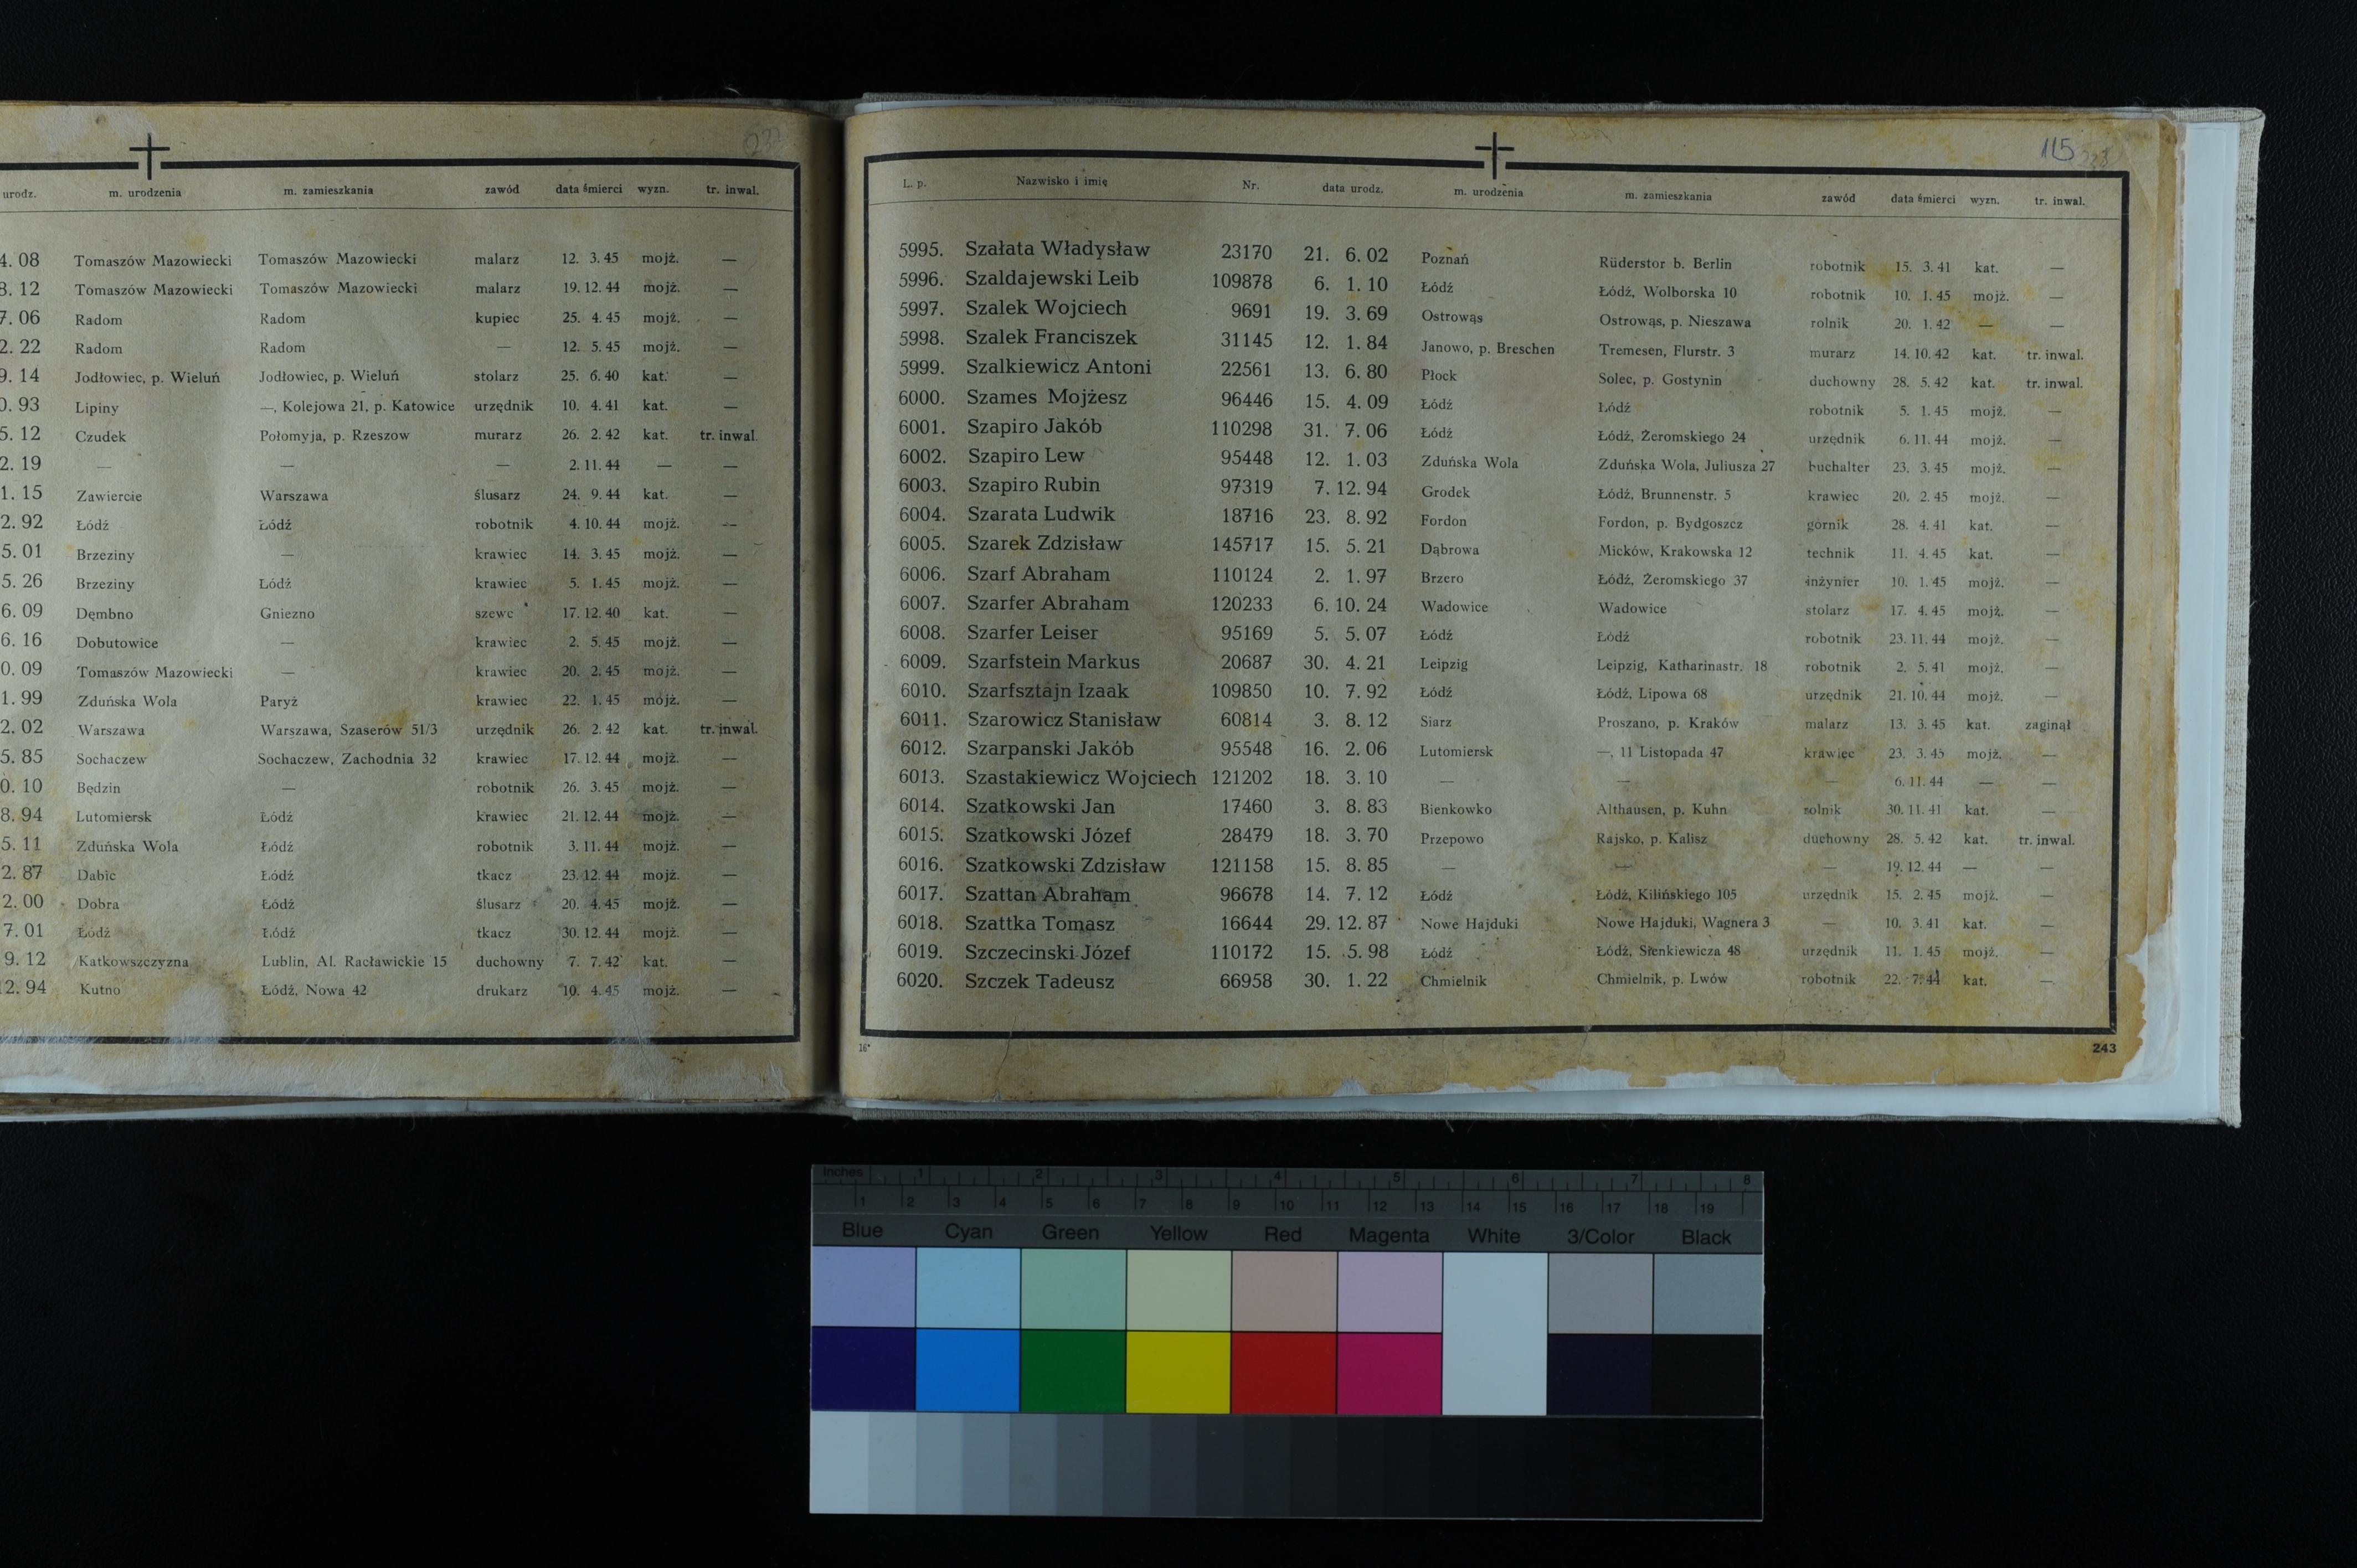 urodz. m. urodzenia m. zamieszkania zawód data śmierci wyzn. tr. inwal.
4. 08 Tomaszów Mazowiecki Tomaszów Mazowiecki malarz 12. 3. 45 mojż. —
8. 12 Tomaszów Mazowiecki Tomaszów Mazowiecki malarz 19. 12. 44 mojż. —
7. 06 Radom Radom kupiec 25. 4. 45 mojż. —
2. 22 Radom Radom — 12. 5. 45 mojż. —
9. 14 Jodłowiec, p. Wieluń Jodłowiec, p. Wieluń stolarz 25. 6. 40 kat. —
0. 93 Lipiny —, Kolejowa 21, p. Katowice urzędnik 10. 4. 41 kat. —
5. 12 Czudek Połomyja, p. Rzeszow murarz 26. 2. 42 kat. tr. inwal.
2. 19 — — — 2. 11. 44 — —
1. 15 Zawiercie Warszawa ślusarz 24. 9. 44 kat. —
2. 92 Łódź Łódź robotnik 4. 10. 44 mojż. —
5. 01 Brzeziny — krawiec 14. 3. 45 mojż. —
5. 26 Brzeziny Łódź krawiec 5. 1. 45 mojż. —
6. 09 Dębno Gniezno szewc 17. 12. 40 kat. —
6. 16 Dobutowice — krawiec 2. 5. 45 mojż. —
0. 09 Tomaszów Mazowiecki — krawiec 20. 2. 45 mojż. —
1. 99 Zduńska Wola Paryż krawiec 22. 1. 45 mojż. —
2. 02 Warszawa Warszawa, Szaserów 51/3 urzędnik 26. 2. 42 kat. tr. inwal.
5. 85 Sochaczew Sochaczew, Zachodnia 32 krawiec 17. 12. 44 mojż. —
0. 10 Będzin — robotnik 26. 3. 45 mojż. —
8. 94 Lutomiersk Łódź krawiec 21. 12. 44 mojż. —
5. 11 Zduńska Wola Łódź robotnik 3. 11. 44 mojż. —
2. 87 Dabic Łódź tkacz 23. 12. 44 mojż. —
2. 00 Dobra Łódź ślusarz 20. 4. 45 mojż. —
7. 01 Łódź Łódź tkacz 30. 12. 44 mojż. —
9. 12 Katkowszczyzna Lublin, Al. Racławickie 15 duchowny 7. 7. 42 kat. —
12. 94 Kutno Łódź, Nowa 42 drukarz 10. 4. 45 mojż. —
115
L. p. Nazwisko i imię Nr. data urodz. m. urodzenia m. zamieszkania zawód data śmierci wyzn. tr. inwal.
5995. Szałata Władysław 23170 21. 6. 02 Poznań Rüderstor b. Berlin robotnik 15. 3. 41 kat. —
5996. Szaldajewski Leib 109878 6. 1. 10 Łódź Łódź, Wolborska 10 robotnik 10. 1. 45 mojż. —
5997. Szalek Wojciech 9691 19. 3. 69 Ostrowąs Ostrowąs, p. Nieszawa rolnik 20. 1. 42 — —
5998. Szalek Franciszek 31145 12. 1. 84 Janowo, p. Breschen Tremesen, Flurstr. 3 murarz 14. 10. 42 kat. tr. inwal.
5999. Szalkiewicz Antoni 22561 13. 6. 80 Płock Solec, p. Gostynin duchowny 28. 5. 42 kat. tr. inwal.
6000. Szames Mojżesz 96446 15. 4. 09 Łódź Łódź robotnik 5. 1. 45 mojż. —
6001. Szapiro Jakób 110298 31. 7. 06 Łódź Łódź, Żeromskiego 24 urzędnik 6. 11. 44 mojż. —
6002. Szapiro Lew 95448 12. 1. 03 Zduńska Wola Zduńska Wola, Juliusza 27 buchalter 23. 3. 45 mojż. —
6003. Szapiro Rubin 97319 7. 12. 94 Grodek Łódź, Brunnenstr. 5 krawiec 20. 2. 45 mojż. —
6004. Szarata Ludwik 18716 23. 8. 92 Fordon Fordon, p. Bydgoszcz górnik 28. 4. 41 kat. —
6005. Szarek Zdzisław 145717 15. 5. 21 Dąbrowa Micków, Krakowska 12 technik 11. 4. 45 kat. —
6006. Szarf Abraham 110124 2. 1. 97 Brzero Łódź, Żeromskiego 37 inżynier 10. 1. 45 mojż. —
6007. Szarfer Abraham 120233 6. 10. 24 Wadowice Wadowice stolarz 17. 4. 45 mojż. —
6008. Szarfer Leiser 95169 5. 5. 07 Łódź Łódź robotnik 23. 11. 44 mojż. —
6009. Szarfstein Markus 20687 30. 4. 21 Leipzig Leipzig, Katharinastr. 18 robotnik 2. 5. 41 mojż. —
6010. Szarfsztajn Izaak 109850 10. 7. 92 Łódź Łódź, Lipowa 68 urzędnik 21. 10. 44 mojż. —
6011. Szarowicz Stanisław 60814 3. 8. 12 Siarz Proszano, p. Kraków malarz 13. 3. 45 kat. zaginął
6012. Szarpanski Jakób 95548 16. 2. 06 Lutomiersk —, 11 Listopada 47 krawiec 23. 3. 45 mojż. —
6013. Szastakiewicz Wojciech 121202 18. 3. 10 — — — 6. 11. 44 — —
6014. Szatkowski Jan 17460 3. 8. 83 Bienkowko Althausen, p. Kuhn rolnik 30. 11. 41 kat. —
6015. Szatkowski Józef 28479 18. 3. 70 Przepowo Rajsko, p. Kalisz duchowny 28. 5. 42 kat. tr. inwal.
6016. Szatkowski Zdzisław 121158 15. 8. 85 — — — 19. 12. 44 — —
6017. Szattan Abraham 96678 14. 7. 12 Łódź Łódź, Kilińskiego 105 urzędnik 15. 2. 45 mojż. —
6018. Szattka Tomasz 16644 29. 12. 87 Nowe Hajduki Nowe Hajduki, Wagnera 3 — 10. 3. 41 kat. —
6019. Szczecinski Józef 110172 15. 5. 98 Łódź Łódź, Sienkiewicza 48 urzędnik 11. 1. 45 mojż. —
6020. Szczek Tadeusz 66958 30. 1. 22 Chmielnik Chmielnik, p. Lwów robotnik 22. 7. 44 kat. —
16* 243
Inches 1 2 3 4 5 6 7 8
1 2 3 4 5 6 7 8 9 10 11 12 13 14 15 16 17 18 19
Blue Cyan Green Yellow Red Magenta White 3/Color Black